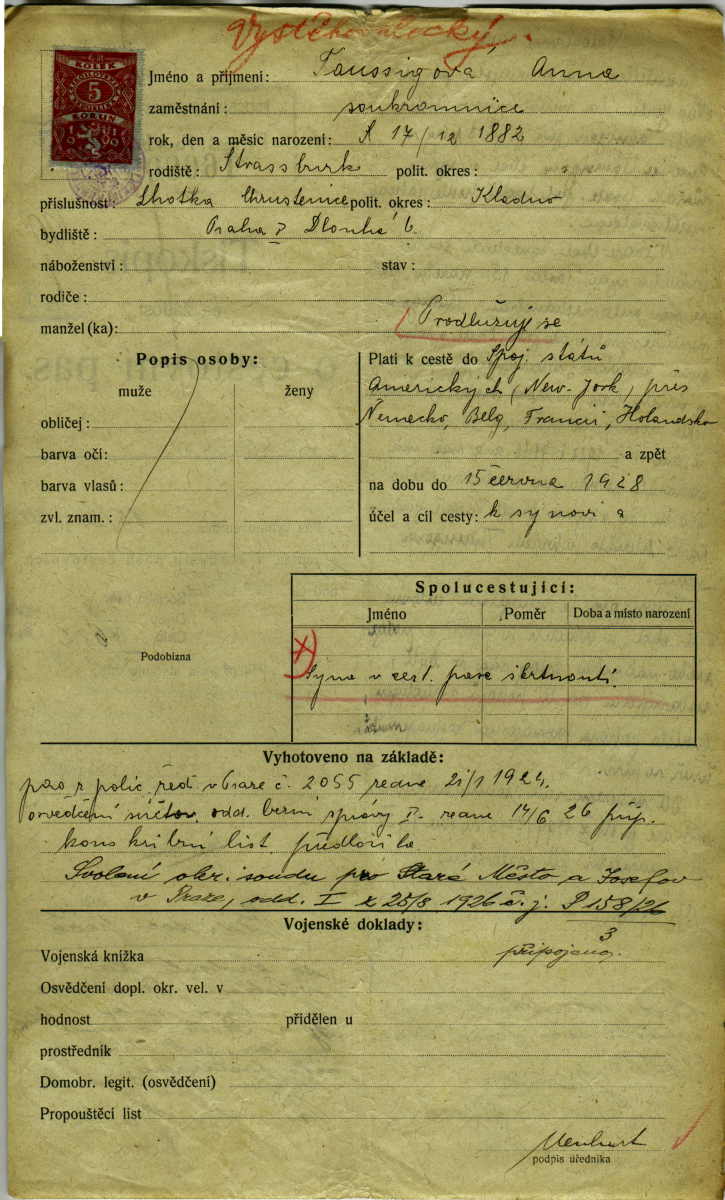 Vystěhovalecký.
KOLEK
5
KORUN
Jméno a přijmení: Taussigova Anna
zaměstnání: soukromnice
rok, den a měsíc narození: 17/12 1882
rodiště: Strassburk polit. okres:
příslušnost: Lhotka Chrustenice polit. okres: Kladno
bydliště: Praha I Dlouhá 6.
náboženství: stav:
rodiče:
manžel (ka): Prodlužuje se
Popis osoby:
muže ženy
obličej:
barva očí:
barva vlasů:
zvl. znam.:
Platí k cestě do Spoj. států
Amerických, (New-York, přes
Německo, Belg, Francii, Holandsko
a zpět
na dobu do 15 června 1928
účel a cíl cesty: k synovi a
Spolucestující:
Jméno Poměr Doba a místo narození
Syna v cest. pase škrtnouti.
Podobizna
Vyhotoveno na základě:
pas z polic. řed. v Praze č. 2055 ze dne 21/1 1924.
osvědčení odd. berní správy I. ze dne 14/6 26 přip.
konskribní list předložila
Svolení okr. soudu pro Staré Město a Josefov
v Praze, odd. I z 25/8 1926 č. j. P 158/26
3
Vojenské doklady:
Vojenská knížka připojeno.
Osvědčení dopl. okr. vel. v
hodnost přidělen u
prostředník
Domobr. legit. (osvědčení)
Propouštěcí list
podpis úředníka